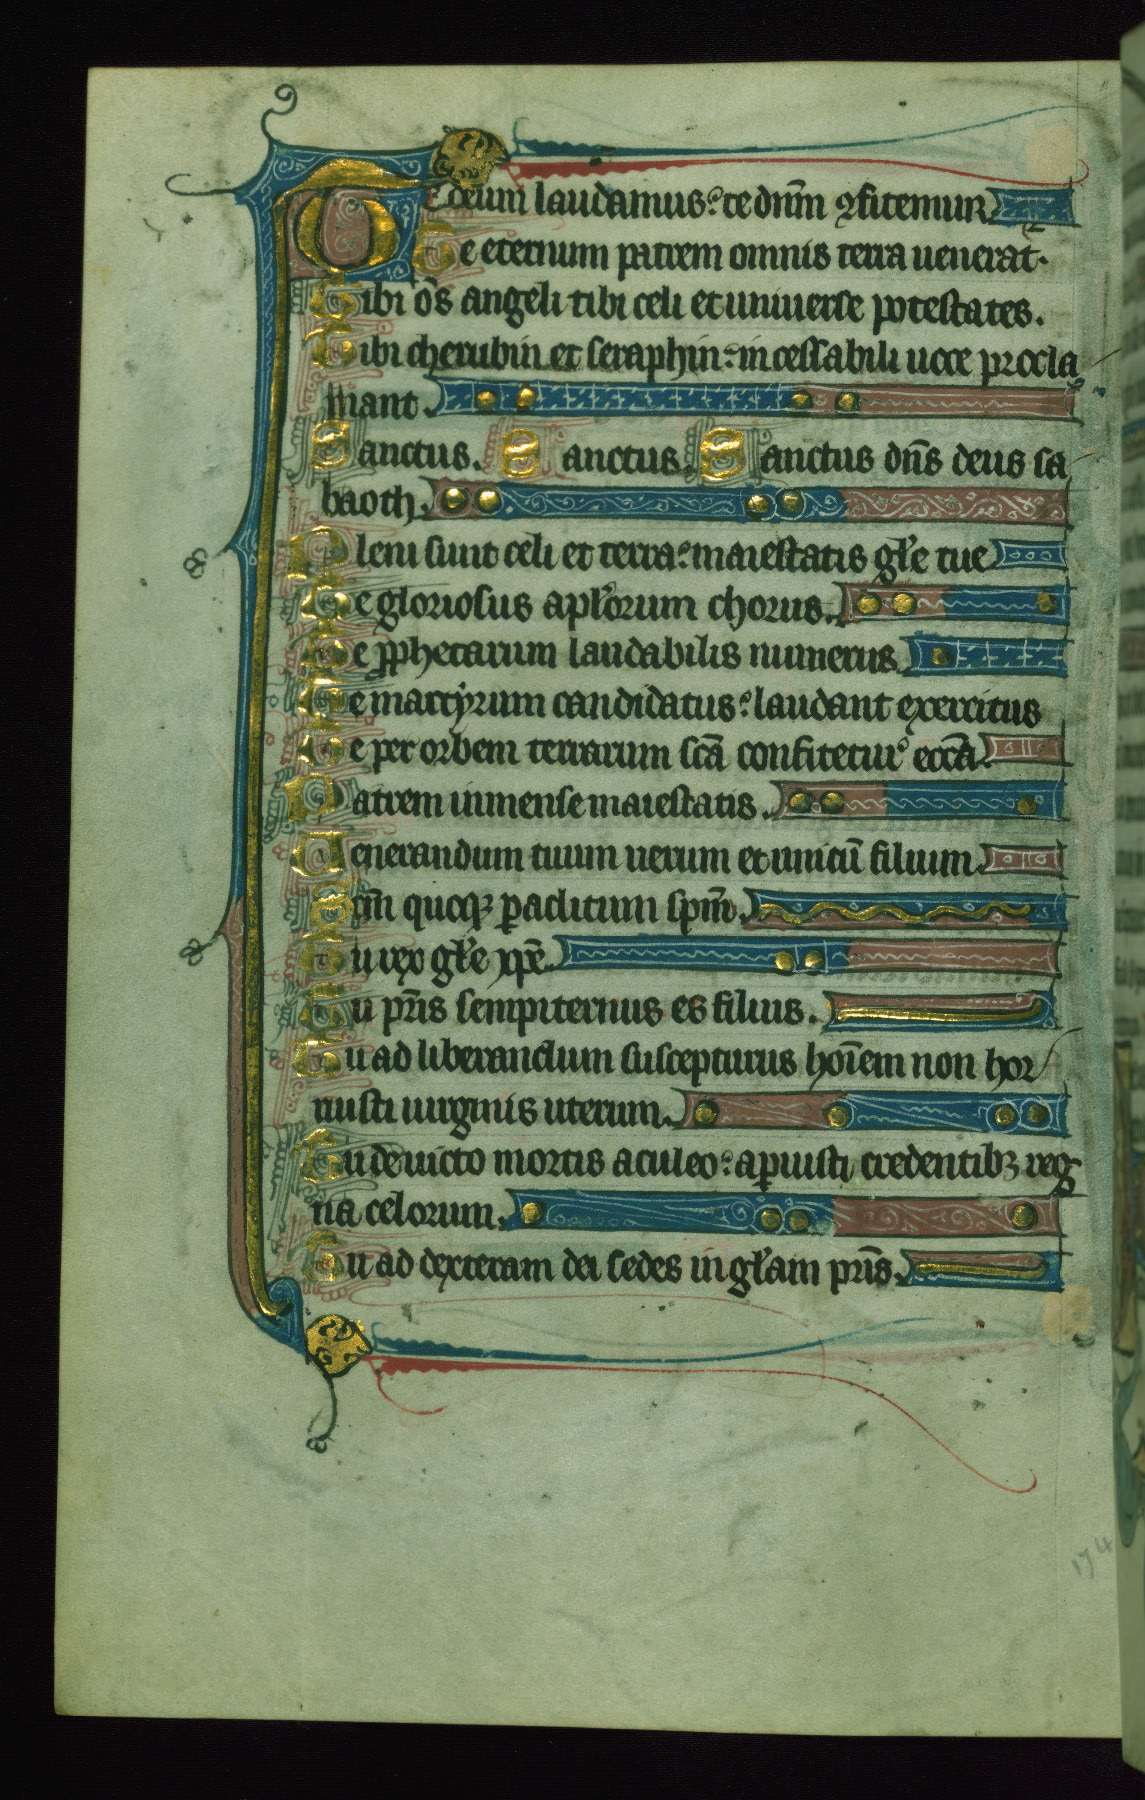 Te deum laudamus: te dn̄m ꝯfitemur
Te eternum patrem omnis terra uenerat̄.
Tibi ōs angeli tibi celi et uniuerse potestates.
Tibi cherubin et seraphin: incessabili uoce procla
mant.
Sanctus. Sanctus. Sanctus dn̄s deus sa
baoth.
Pleni sunt celi et terra: maiestatis gl̄e tue
Te gloriosus apl̄orum chorus.
Te ꝓphetarum laudabilis numerus.
Te martyrum candidatus: laudant exercitus
Te per orbem terrarum sc̄a confitetur eccā.
Patrem inmense maiestatis.
Uenerandum tuum uerum et unicū filium.
Sc̄m quoqꝫ ꝑaclitum sp̄m.
Tu rex gl̄e xp̄e.
Tu pr̄is sempiternus es filius.
Tu ad liberandum suscepturus hoīem non hor
ruisti uirginis uterum.
Tu deuicto mortis aculeo: aꝑuisti credentibꝫ reg
na celorum.
Tu ad dexteram dei sedes in gl̄am pr̄is.
174